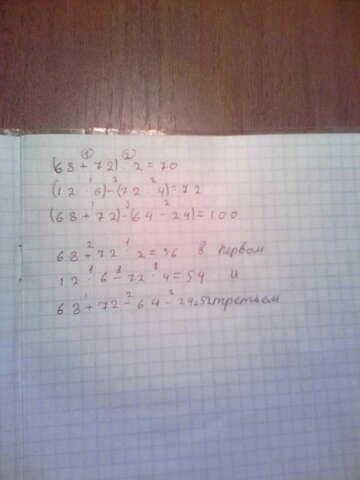 1 2
(68+72) : 2=70
1 3 2
(12 · 6)-(72 : 4)=72
1 3 2
(68+72)-(64-24)=100
2 1
68+72 : 2=36 в первом
1 3 2
12 · 6-72 : 4=54 и
1 2 3
68+72-64-24=52 третьем